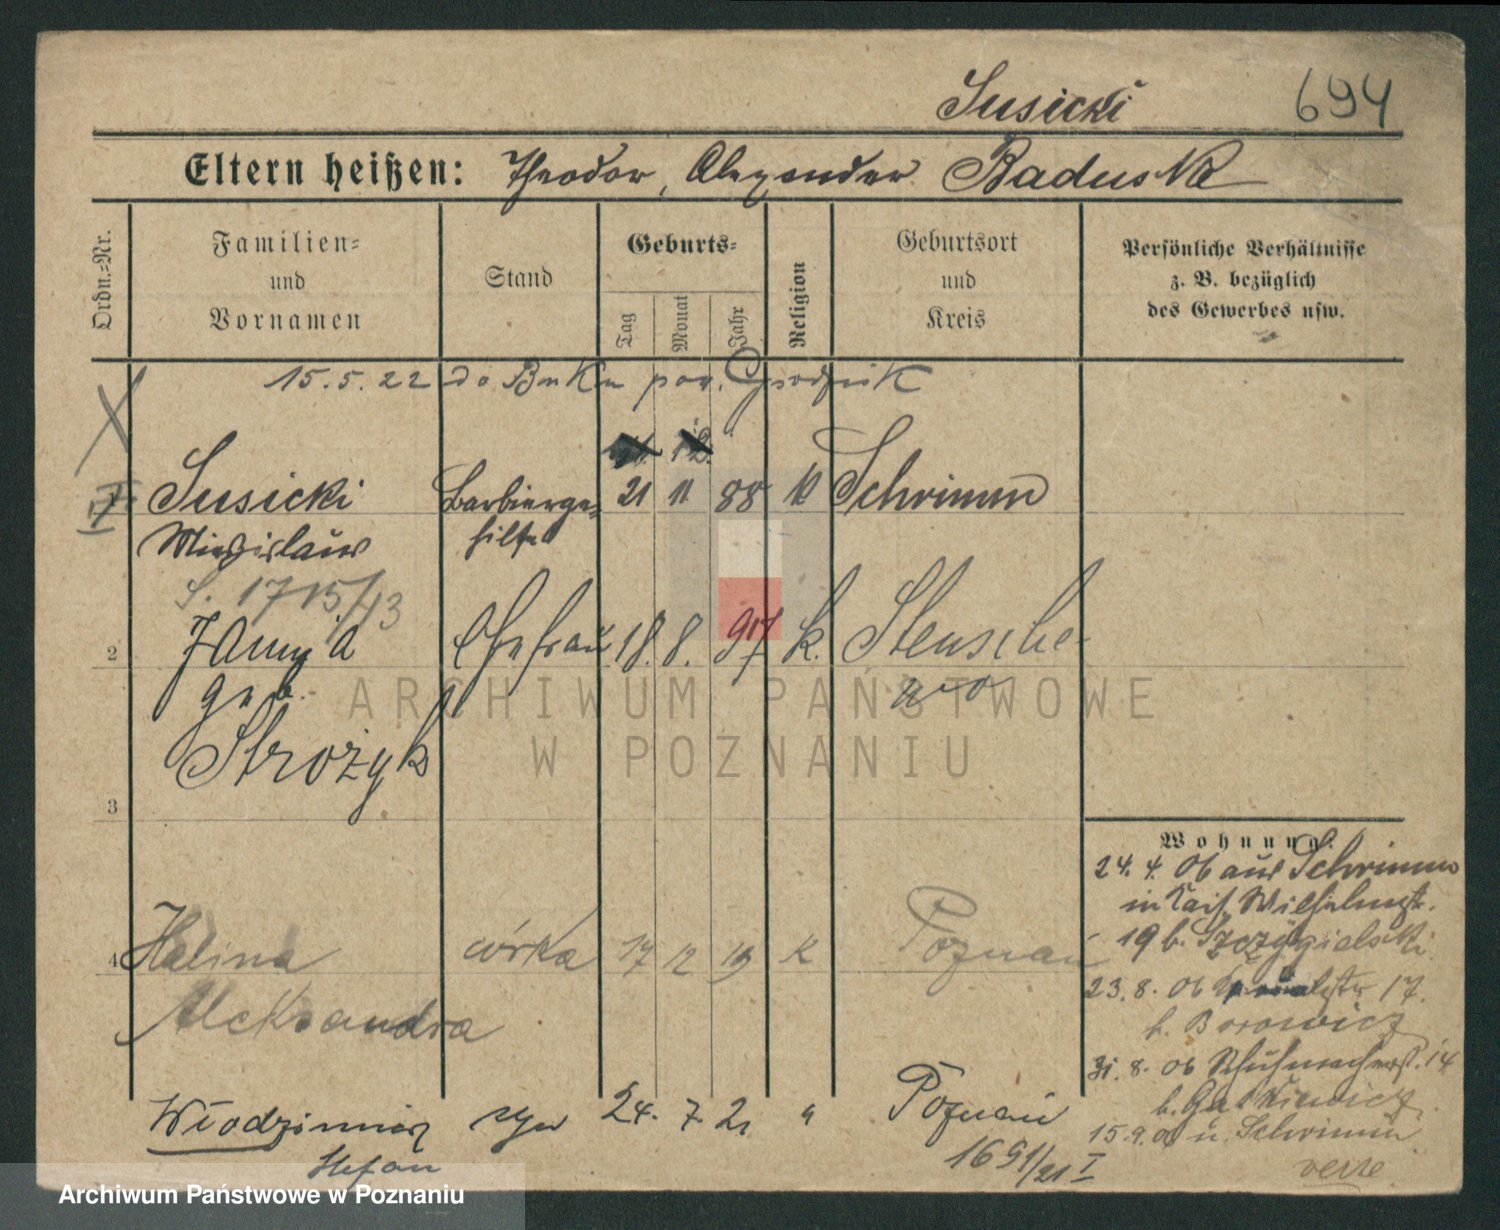 Susicki
694
Eltern heißen: Theodor, Alexander Baduska
Ordn.-Nr.
Familien-
und
Vornamen
Stand
Geburts-
Tag
Monat
Jahr
Religion
Geburtsort
und
Kreis
Persönliche Verhältnisse
z. B. bezüglich
des Gewerbes usw.
15.5.22 do Buku pow. Grodzisk
12.
Susicki Barbierge- 21 11 88 k Schrimm
Mieczislaus hilfe
S. 1715/13
2 geb. Ehefrau 18. 8. 97 k. Stensche-
wo
Strożyk
3
4 Halina córka 17 12 19 k Poznań
Aleksandra
Włodzimierz syn 24. 7. 21 " Poznań
Stefan
1691/21 I
Wohnung.
24. 4. 06 aus Schrimm
in Kais. Wilhelmst.
19 b. Szczygielski
23. 8. 06 17.
b. Borowicz
31. 8. 06 Schuhmacherst. 14
15. 9. 06 n. Schrimm
verte
ARCHIWUM PAŃSTWOWE
W POZNANIU
Archiwum Państwowe w Poznaniu